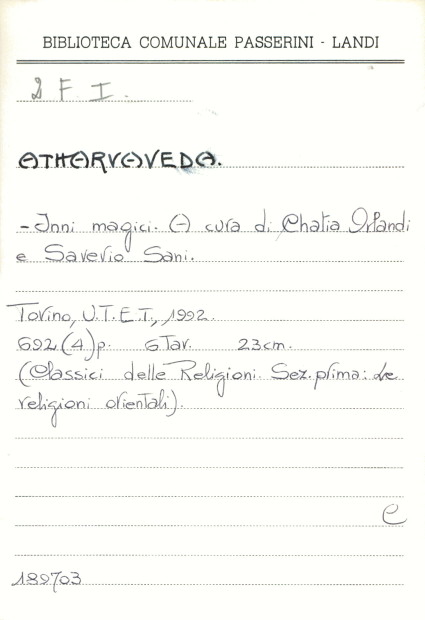 BIBLIOTECA COMUNALE PASSERINI - LANDI
2 F I.
ATHARVAVEDA.
- Inni magici. A cura di Chatia Orlandi
e Saverio Sani.
Torino, U.T.E.T., 1992.
692(4)p. 6 Tav. 23cm.
(Classici delle Religioni. Sez. prima: Le
religioni orientali).
e
189703